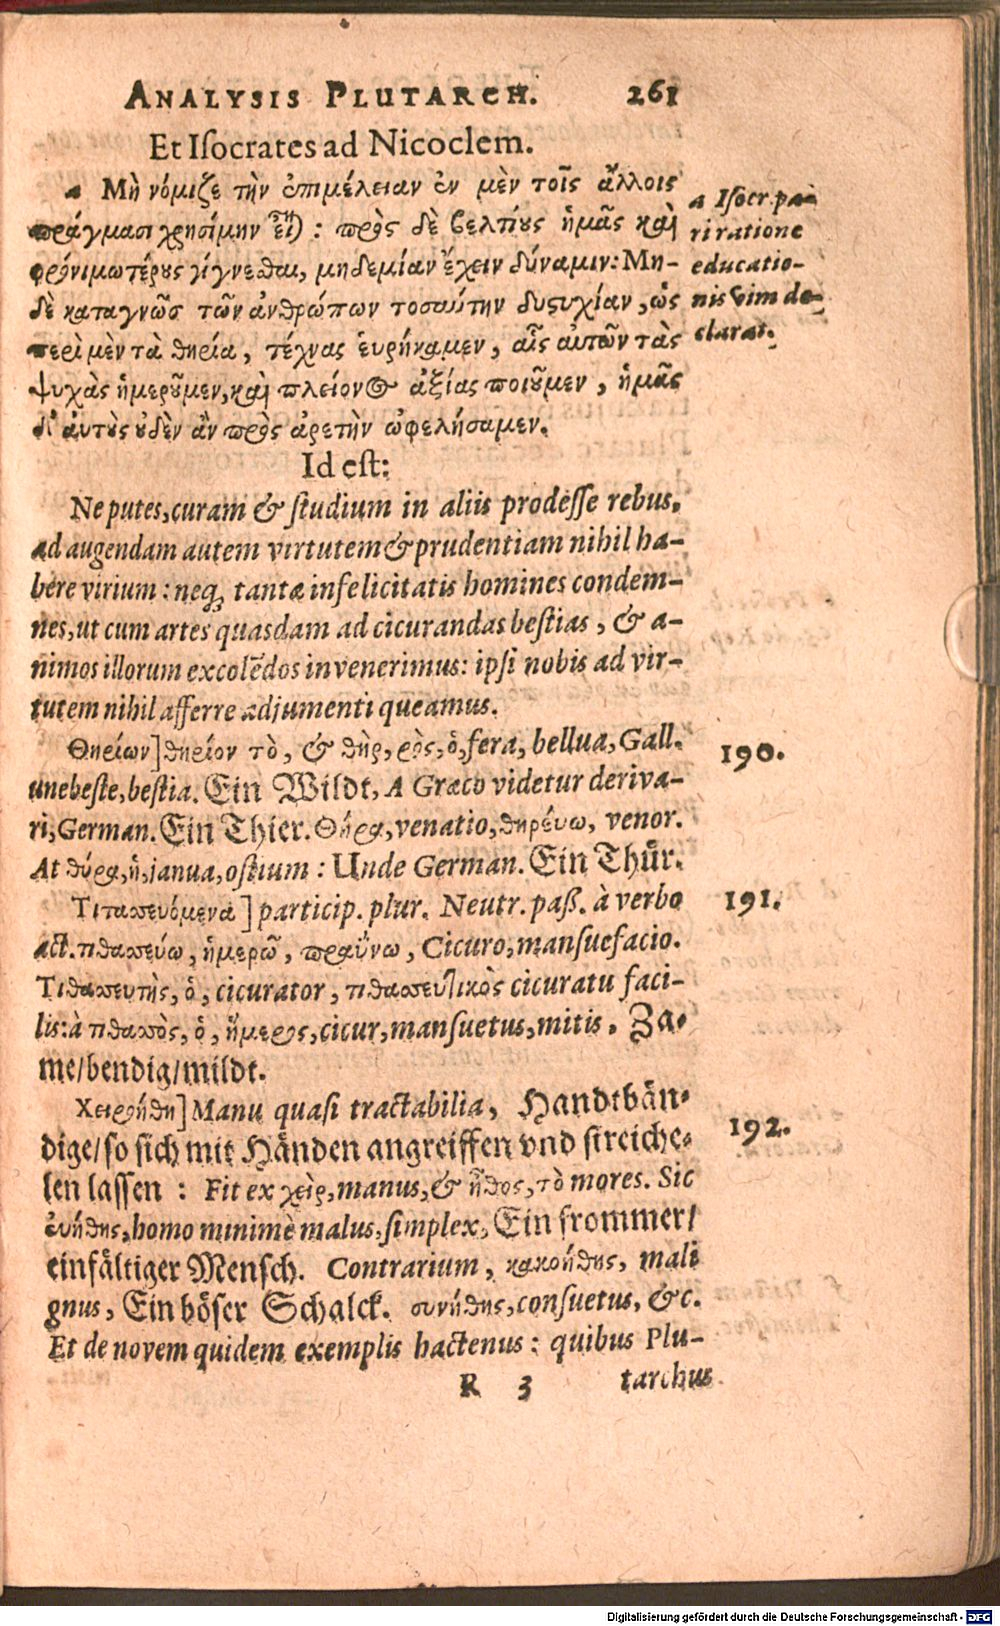 ANALYSIS PLUTARCH. 261
Et Iſocrates ad Nicoclem.
a Μὴ νόμιζε τὴν ἐπιμέλειαν ἐν μὲν τοῖς ἄλλοις
πράγμασι χρησίμην εἶ): πρὸς δὲ βελτίους ἡμᾶς καὶ
φρόνιμωτέρους γίγνεσθαι, μηδεμίαν ἔχειν δύναμιν: Μη-
δὲ καταγνῶς τῶν ἀνθρώπων τοσαύτην δυςυχίαν, ὡς
περὶ μὲν τὰ θηρία, τέχνας εὑρήκαμεν, αἷς αὐτῶν τὰς
ψυχὰς ἡμεροῦμεν, καὶ πλείονος ἀξίας ποιοῦμεν, ἡμᾶς
δ' αὐτοὺς οὐδὲν ἂν πρὸς ἀρετὴν ὠφελήσαμεν.
a Iſocr. pa-
ri ratione
educatio-
nis vim de-
clarat.
Id eſt:
Ne putes, curam & ſtudium in aliis prodeſſe rebus,
ad augendam autem virtutem & prudentiam nihil ha-
bere virium: neq; tantæ infelicitatis homines condem-
nes, ut cum artes quasdam ad cicurandas beſtias, & a-
nimos illorum excolēdos invenerimus: ipſi nobis ad vir-
tutem nihil afferre adjumenti queamus.
Θηρίων] θηρίον τὸ, & θὴρ, ρὸς, ὁ, fera, bellua, Gall.
une beſte, beſtia. Ein Wildt, A Græco videtur deriva-
ri, German. Ein Thier. Θήρα, venatio, θηρεύω, venor.
At θύρα, ἡ, janua, oſtium: Unde German. Ein Thür.
190.
Τιθασευόμενα] particip. plur. Neutr. paß. à verbo
act. τιθασεύω, ἡμερῶ, πραΰνω, Cicuro, manſuefacio.
Τιθασευτὴς, ὁ, cicurator, τιθασευτικὸς cicuratu faci-
lis: à τιθασὸς, ὁ, ἥμερος, cicur, manſuetus, mitis. Za-
me/bendig/mildt.
191.
Χειροήθη] Manu quaſi tractabilia, Handtbän-
dige/ſo ſich mit Händen angreiffen vnd ſtreiche-
len laſſen: Fit ex χεὶρ, manus, & ἦθος, τὸ mores. Sic
ἐυήθης, homo minimè malus, ſimplex, Ein frommer/
einfältiger Menſch. Contrarium, κακοήθης, mali
gnus, Ein böſer Schalck. συνήθης, conſuetus, &c.
Et de novem quidem exemplis hactenus: quibus Plu-
192.
R 3 tarchus
Digitalisierung gefördert durch die Deutsche Forschungsgemeinschaft - DFG